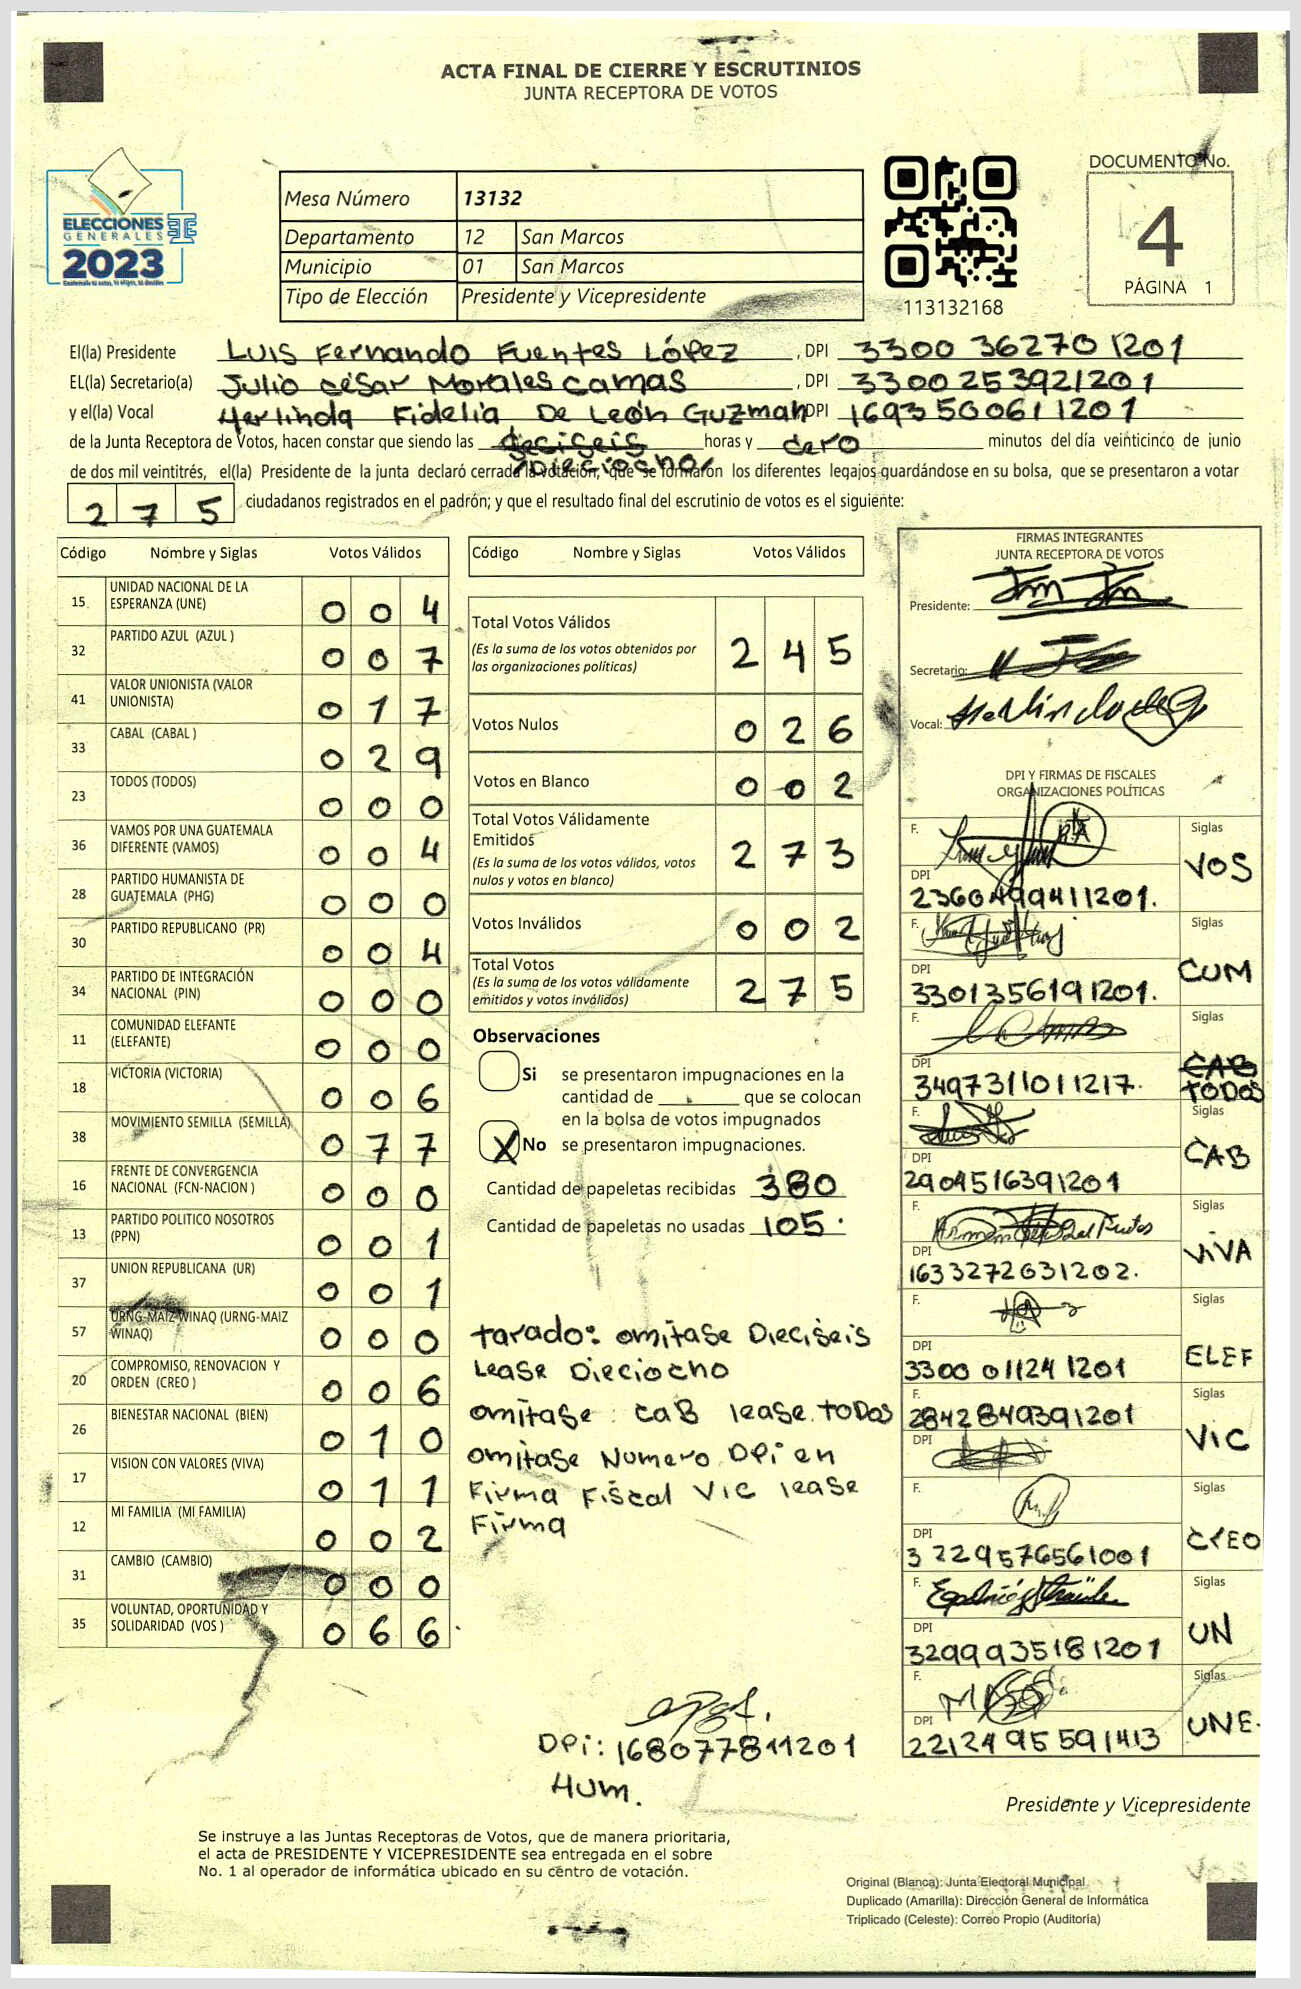 ACTA FINAL DE CIERRE Y ESCRUTINIOS
JUNTA RECEPTORA DE VOTOS
ELECCIONES
GENERALES
2023
Mesa Número 13132
Departamento 12 San Marcos
Municipio 01 San Marcos
Tipo de Elección Presidente y Vicepresidente
113132168
DOCUMENTO No.
4
PÁGINA 1
El(la) Presidente Luis Fernando Fuentes López , DPI 3300 36270 1201
EL(la) Secretario(a) Julio César Morales Camas , DPI 3300253921201
y el(la) Vocal Herlinda Fidelia De León Guzman DPI 1693500611201
de la Junta Receptora de Votos, hacen constar que siendo las deciseis horas y cero minutos del día veinticinco de junio
Dieciocho
de dos mil veintitrés, el(la) Presidente de la junta declaró cerrada la votación, que se formaron los diferentes legajos guardándose en su bolsa, que se presentaron a votar
275 ciudadanos registrados en el padrón; y que el resultado final del escrutinio de votos es el siguiente:
Código Nombre y Siglas Votos Válidos
15 UNIDAD NACIONAL DE LA ESPERANZA (UNE) 004
32 PARTIDO AZUL (AZUL ) 007
41 VALOR UNIONISTA (VALOR UNIONISTA) 017
33 CABAL (CABAL ) 029
23 TODOS (TODOS) 000
36 VAMOS POR UNA GUATEMALA DIFERENTE (VAMOS) 004
28 PARTIDO HUMANISTA DE GUATEMALA (PHG) 000
30 PARTIDO REPUBLICANO (PR) 004
34 PARTIDO DE INTEGRACIÓN NACIONAL (PIN) 000
11 COMUNIDAD ELEFANTE (ELEFANTE) 000
18 VICTORIA (VICTORIA) 006
38 MOVIMIENTO SEMILLA (SEMILLA) 077
16 FRENTE DE CONVERGENCIA NACIONAL (FCN-NACION ) 000
13 PARTIDO POLITICO NOSOTROS (PPN) 001
37 UNION REPUBLICANA (UR) 001
57 URNG-MAIZ-WINAQ (URNG-MAIZ WINAQ) 000
20 COMPROMISO, RENOVACION Y ORDEN (CREO ) 006
26 BIENESTAR NACIONAL (BIEN) 010
17 VISION CON VALORES (VIVA) 011
12 MI FAMILIA (MI FAMILIA) 002
31 CAMBIO (CAMBIO) 000
35 VOLUNTAD, OPORTUNIDAD Y SOLIDARIDAD (VOS ) 066
Código Nombre y Siglas Votos Válidos
Total Votos Válidos 245
(Es la suma de los votos obtenidos por
las organizaciones políticas)
Votos Nulos 026
Votos en Blanco 002
Total Votos Válidamente
Emitidos 273
(Es la suma de los votos válidos, votos
nulos y votos en blanco)
Votos Inválidos 002
Total Votos 275
(Es la suma de los votos válidamente
emitidos y votos inválidos)
Observaciones
Si se presentaron impugnaciones en la
cantidad de ____ que se colocan
en la bolsa de votos impugnados
X No se presentaron impugnaciones.
Cantidad de papeletas recibidas 380
Cantidad de papeletas no usadas 105.
tarado: omitase Dieciseis
Lease Dieciocho
omitase: CAB lease TODOS
omitase Numero DPi en
Firma Fiscal Vic lease
Firma
DPi: 168077811201
Hum.
FIRMAS INTEGRANTES
JUNTA RECEPTORA DE VOTOS
Presidente:
Secretario:
Vocal:
DPI Y FIRMAS DE FISCALES
ORGANIZACIONES POLÍTICAS
F. Siglas
VOS
DPI
2360499411201.
F. Siglas
CUM
DPI
3301356191201.
F. Siglas
CAB
TODOS
DPI
3497311011217.
F. Siglas
CAB
DPI
2904516391201
F. Siglas
ViVA
DPI
1633272631202.
F. Siglas
ELEF
DPI
3300 01124 1201
F. Siglas
2842849391201
ViC
DPI
F. Siglas
CrEO
DPI
3229576561001
F. Siglas
UN
DPI
3299935181201
F. Siglas
UNE.
DPI
2212495591413
Presidente y Vicepresidente
Se instruye a las Juntas Receptoras de Votos, que de manera prioritaria,
el acta de PRESIDENTE Y VICEPRESIDENTE sea entregada en el sobre
No. 1 al operador de informática ubicado en su centro de votación.
Original (Blanca): Junta Electoral Municipal
Duplicado (Amarilla): Dirección General de Informática
Triplicado (Celeste): Correo Propio (Auditoría)